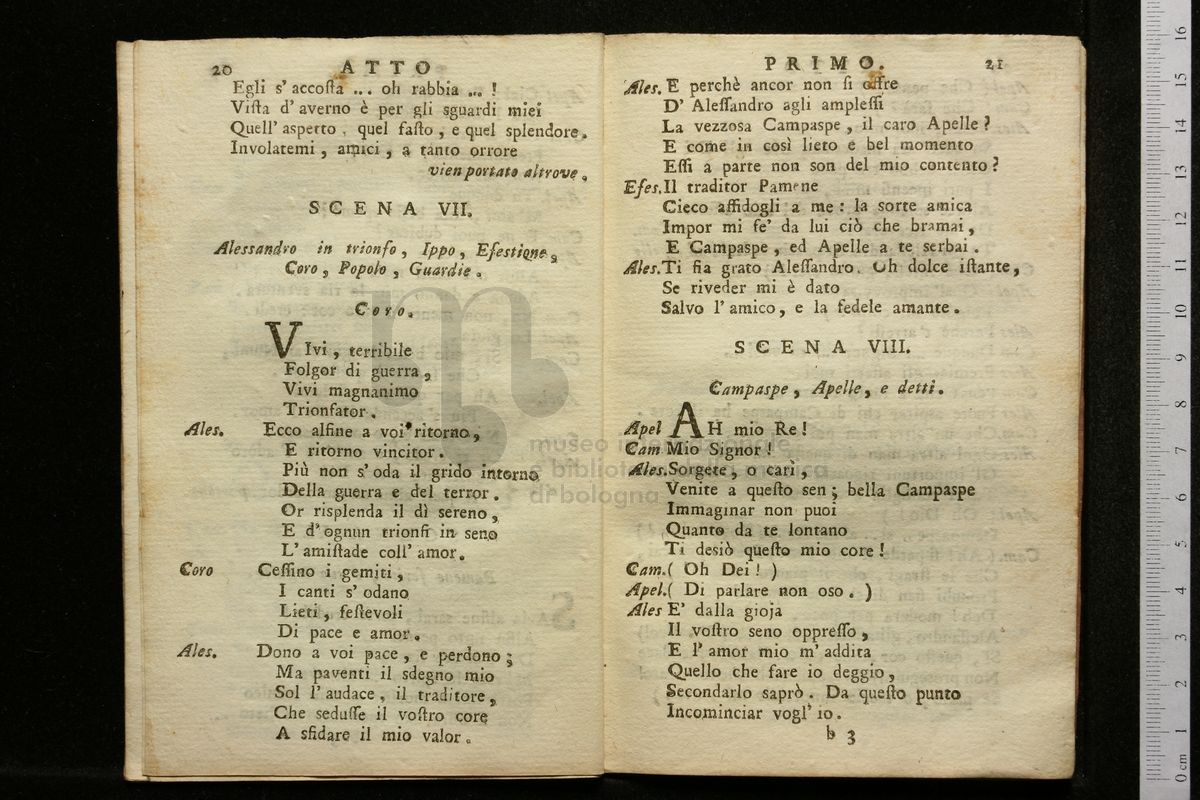 20 ATTO
Egli s' accosta ... oh rabbia ... !
Vista d' averno è per gli sguardi miei
Quell' aspetto, quel fasto, e quel splendore.
Involatemi, amici, a tanto orrore
vien portato altrove.
SCENA VII.
Alessandro in trionfo, Ippo, Efestione,
Coro, Popolo, Guardie.
Coro.
VIvi, terribile
Folgor di guerra,
Vivi magnanimo
Trionfator.
Ales. Ecco alfine a voi ritorno,
E ritorno vincitor.
Più non s' oda il grido intorno
Della guerra e del terror.
Or risplenda il dì sereno,
E d' ognun trionfi in seno
L' amistade coll' amor.
Coro Cessino i gemiti,
I canti s' odano
Lieti, festevoli
Di pace e amor.
Ales. Dono a voi pace, e perdono;
Ma paventi il sdegno mio
Sol l' audace, il traditore,
Che sedusse il vostro core
A sfidare il mio valor.
PRIMO. 21
Ales. E perchè ancor non si offre
D' Alessandro agli amplessi
La vezzosa Campaspe, il caro Apelle?
E come in così lieto e bel momento
Essi a parte non son del mio contento?
Efes. Il traditor Pamene
Cieco affidogli a me: la sorte amica
Impor mi fe' da lui ciò che bramai,
E Campaspe, ed Apelle a te serbai.
Ales. Ti fia grato Alessandro. Oh dolce istante,
Se riveder mi è dato
Salvo l' amico, e la fedele amante.
SCENA VIII.
Campaspe, Apelle, e detti.
Apel AH mio Re!
Cam Mio Signor!
Ales. Sorgete, o cari,
Venite a questo sen; bella Campaspe
Immaginar non puoi
Quanto da te lontano
Ti desiò questo mio core!
Cam. ( Oh Dei! )
Apel. ( Di parlare non oso. )
Ales E' dalla gioja
Il vostro seno oppresso,
E l' amor mio m' addita
Quello che fare io deggio,
Secondarlo saprò. Da questo punto
Incominciar vogl' io.
b 3
museo internazionale
e biblioteca della musica
di bologna
0 cm 1 2 3 4 5 6 7 8 9 10 11 12 13 14 15 16